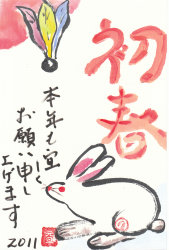 初春
本年も宜しく
お願い申し
上げます
2011